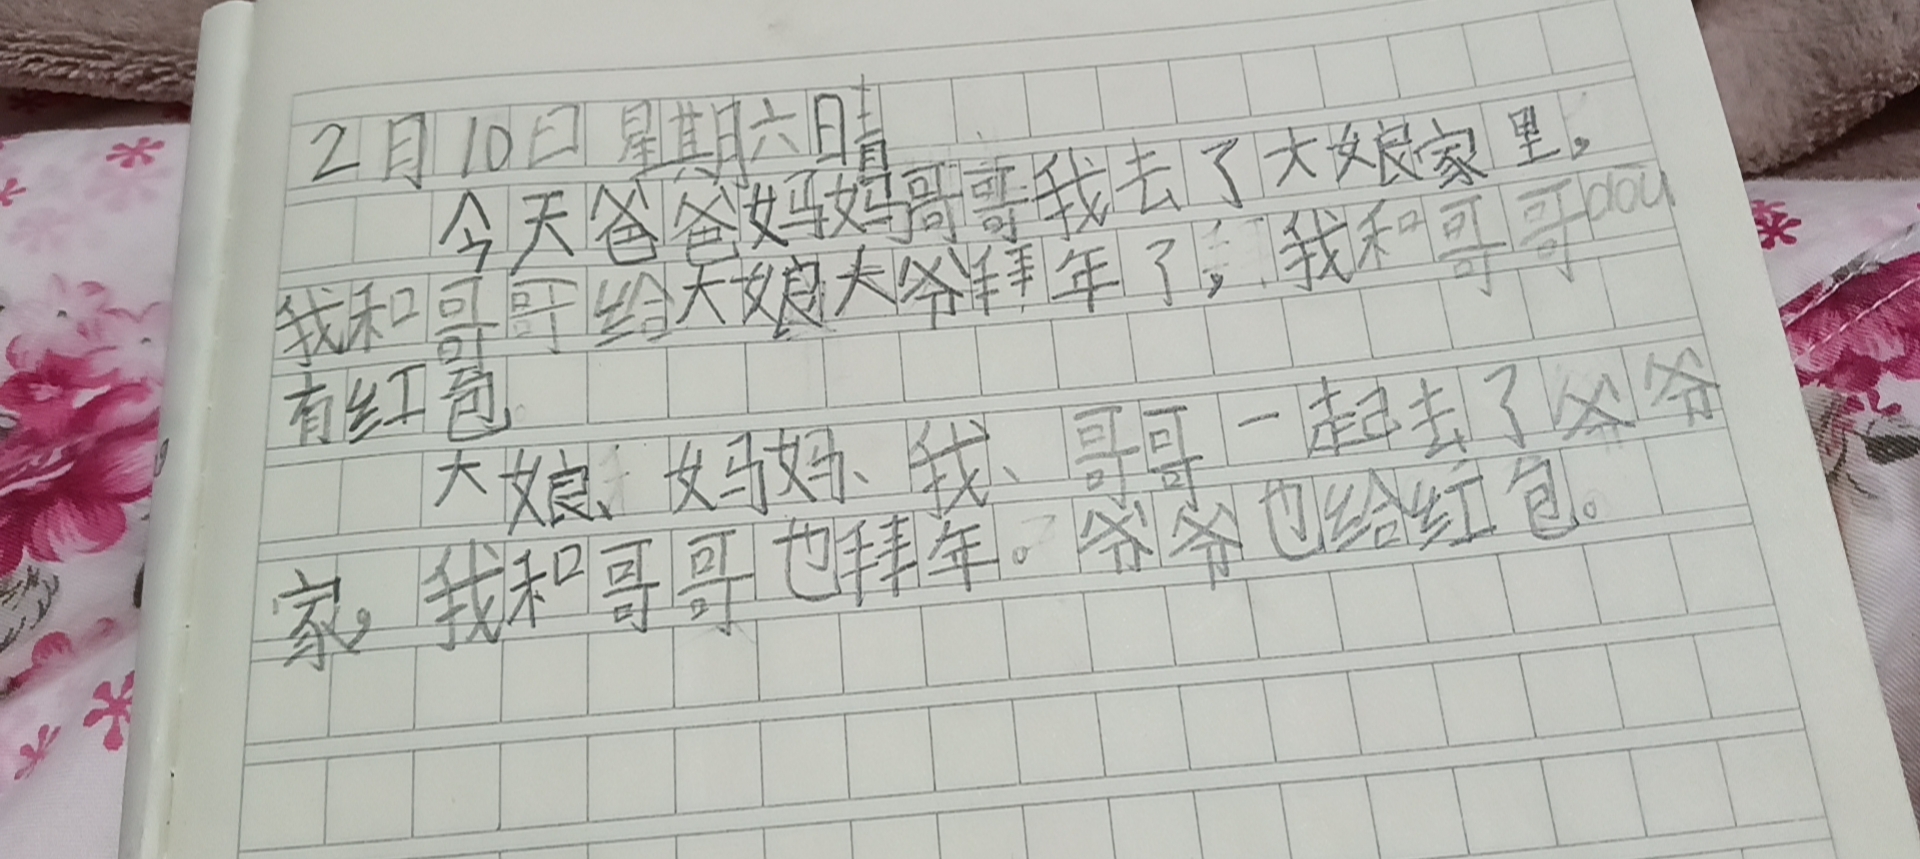 2月10日星期六晴
今天爸爸妈妈哥哥我去了大娘家里，
我和哥哥给大娘大爷拜年了，我和哥哥dōu
有红包。
大娘、妈妈、我、哥哥一起去了爷爷
家，我和哥哥也拜年。爷爷也给红包。